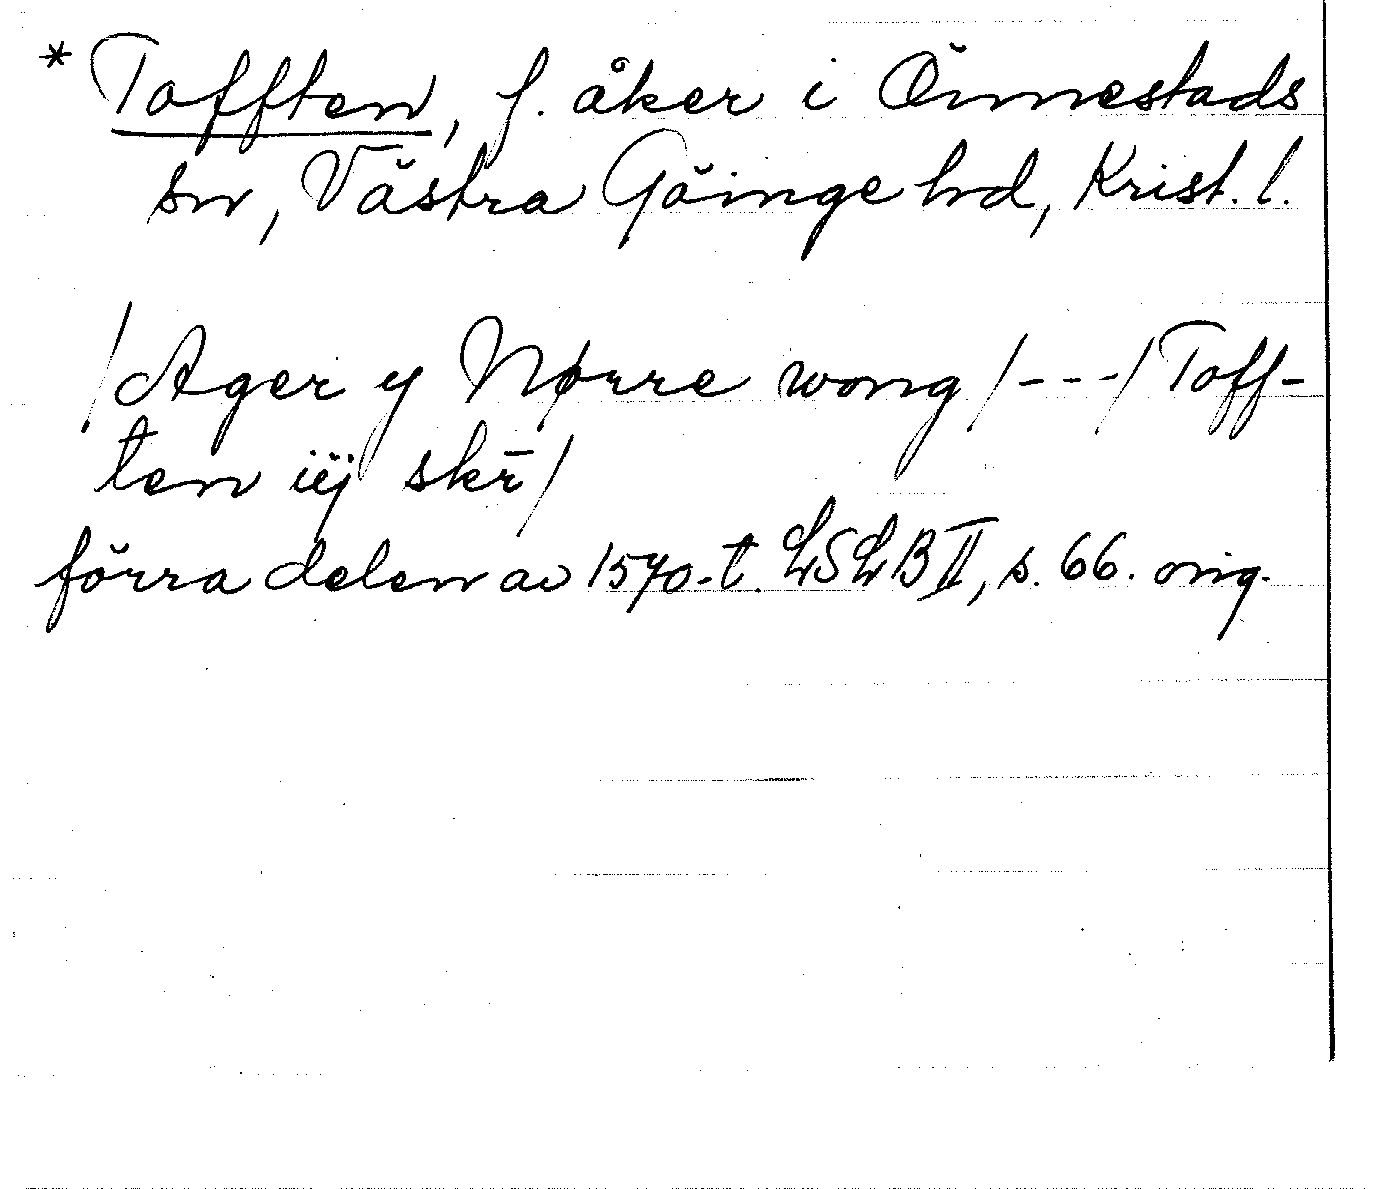 * Tofften, f. åker i Önnestads
sn, Västra Göinge hd, Krist. l.
/Ager y Nørre wong/---/Toff-
ten iij skr̄/
förra delen av 1570-t. LSLB II, s. 66. orig.